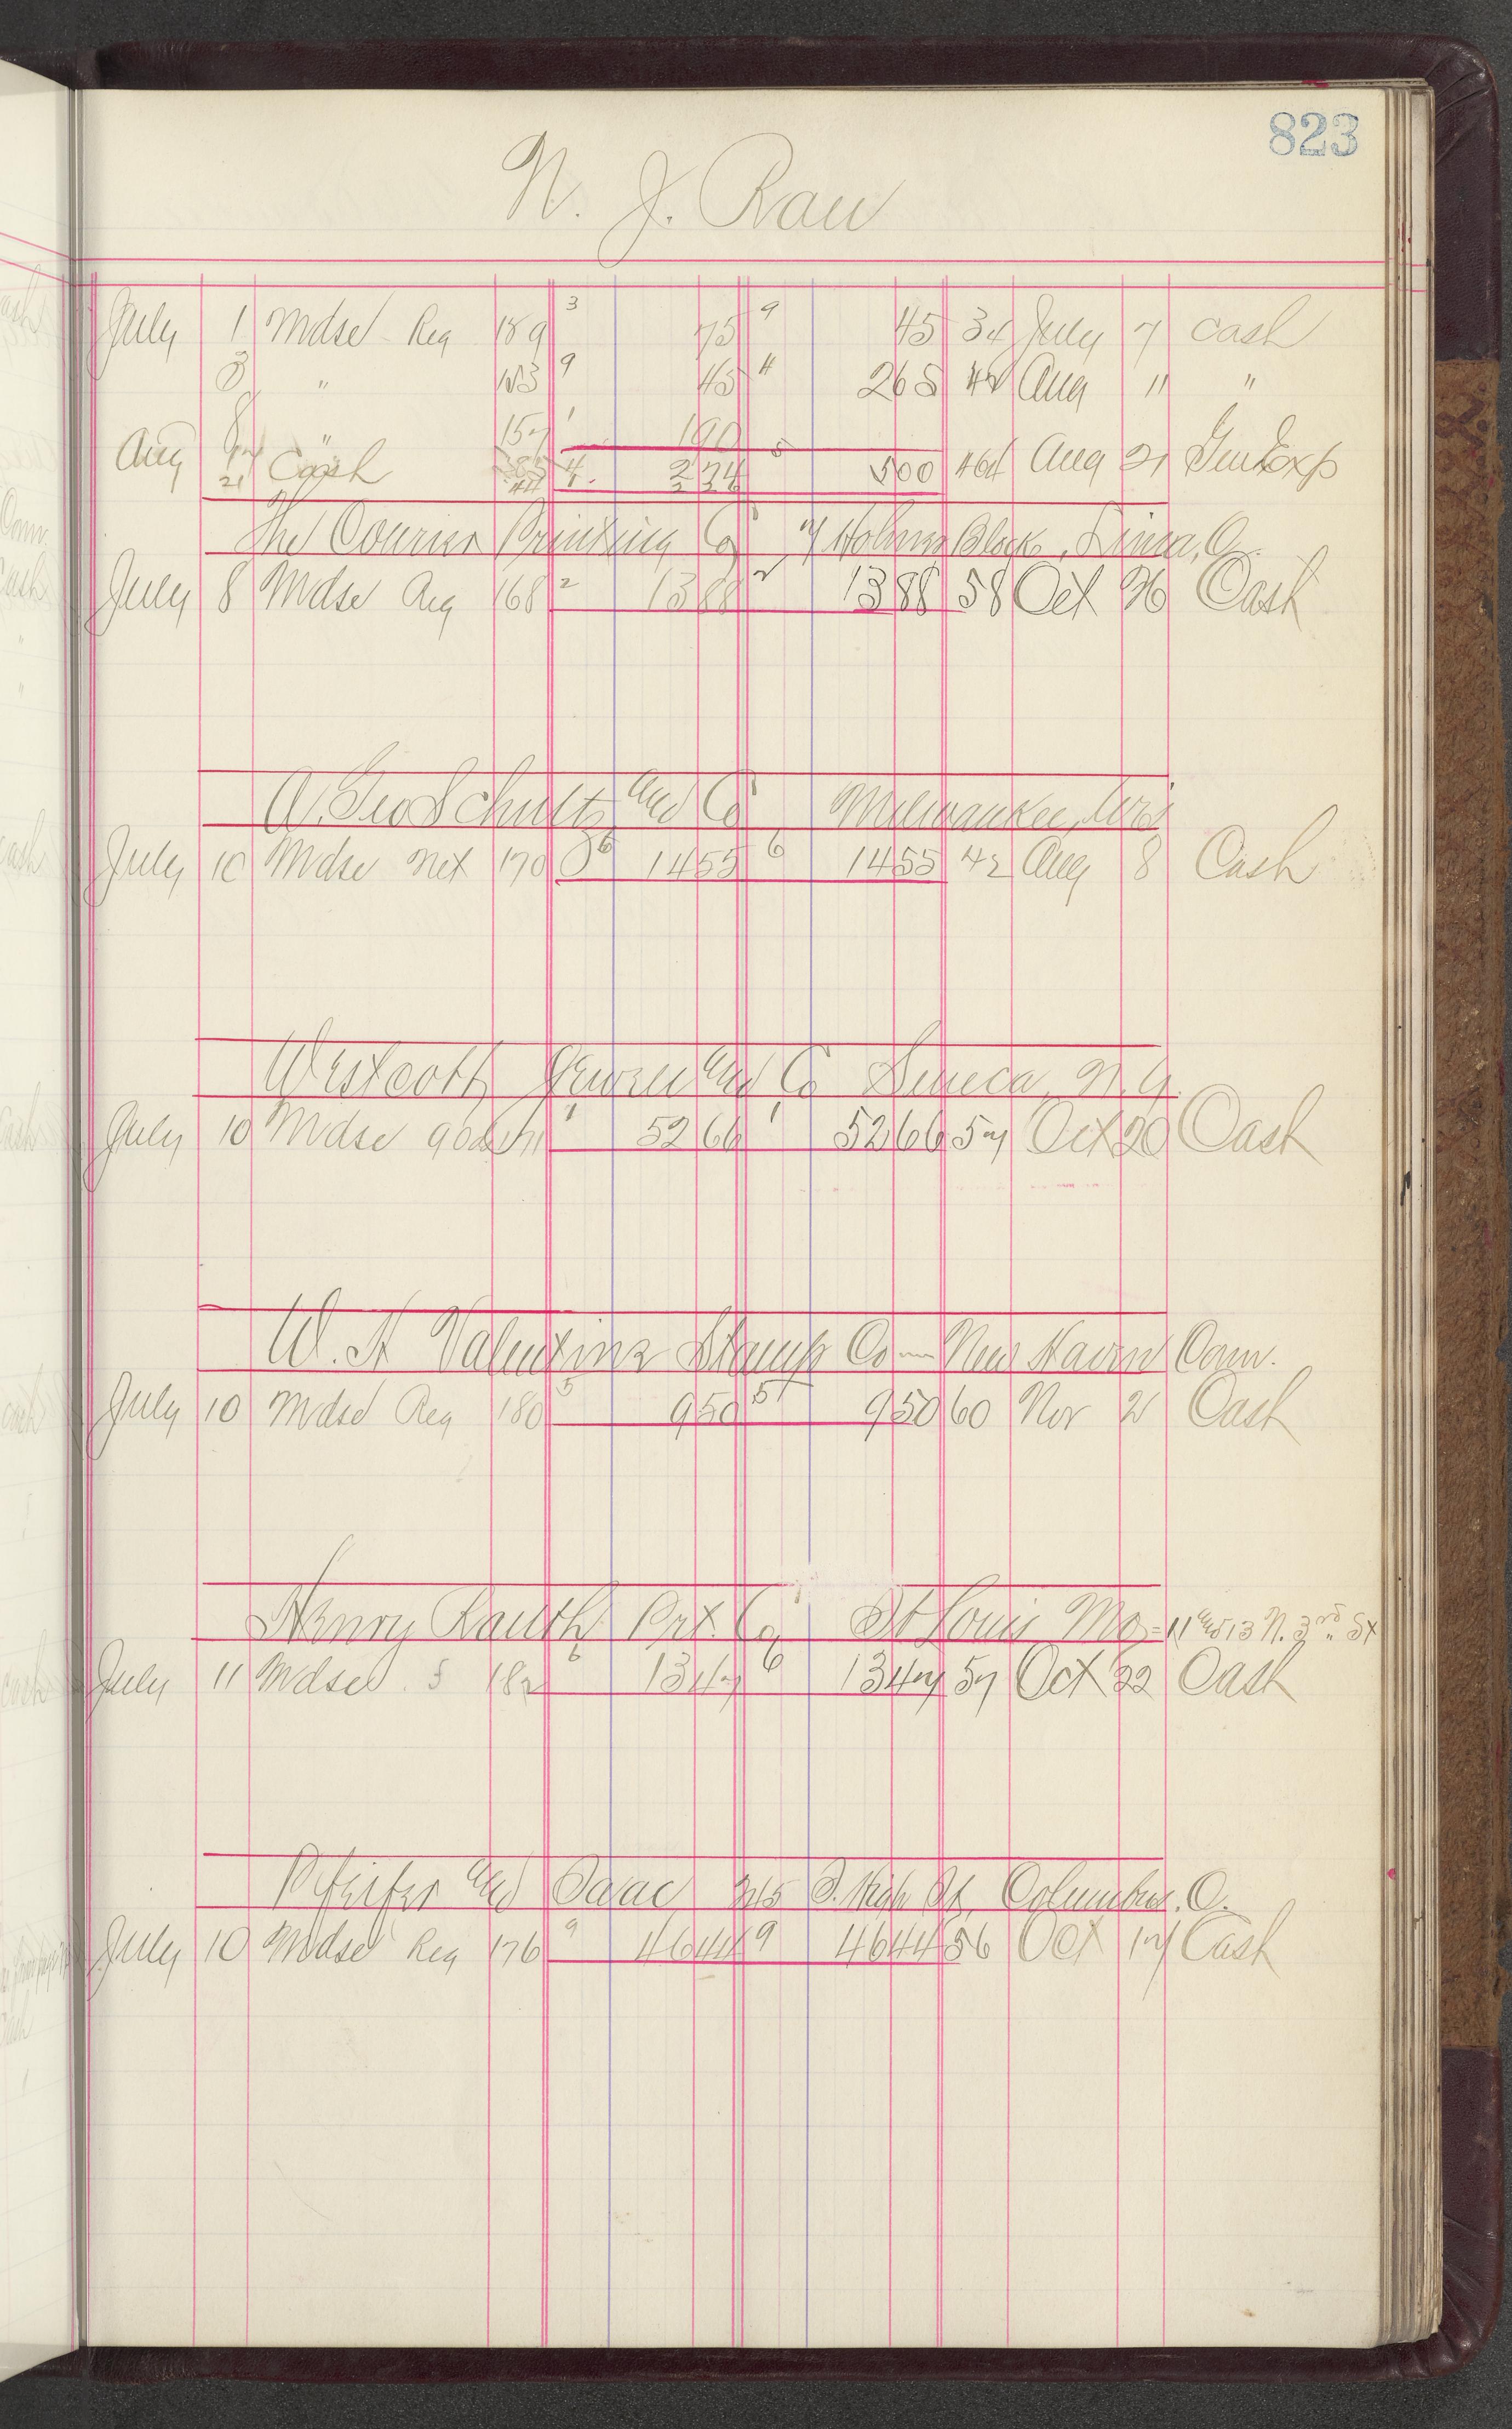 823
N. J. Rau
July 1 Mdse Reg 189 3 75 9 45 34 July 7 cash
3 " 153 9 45 4 265 42 Aug 11 "
8 " 157 1 190
Aug 21 Cash 44 4 2 24 5 500 464 Aug 21 Gen Exp
The Courier Printing Co 7 Holmes Block, Lima, O.
July 8 Mdse Reg 168 2 1388 2 1388 58 Oct 26 Cash
A. Geo Schultz and Co Milwaukee, Wis
July 10 Mdse net 170 6 1455 6 1455 42 Aug 8 Cash
Westcott Jewell and Co Seneca, N.Y.
July 10 Mdse 90 1 5266 1 5266 57 Oct 20 Cash
W. H Valentine Stamp Co — New Haven Conn.
July 10 Mdse Reg 180 5 950 5 950 60 Nov 2 Cash
Henry Rauth Prt. Co St Louis Mo = 11 and 13 N. 3rd St
July 11 Mdse 182 6 1347 6 1347 57 Oct 22 Cash
Pfeifer and Isaac S. High St, Columbus, O.
July 10 Mdse Reg 176 9 4644 9 4644 56 Oct 17 Cash